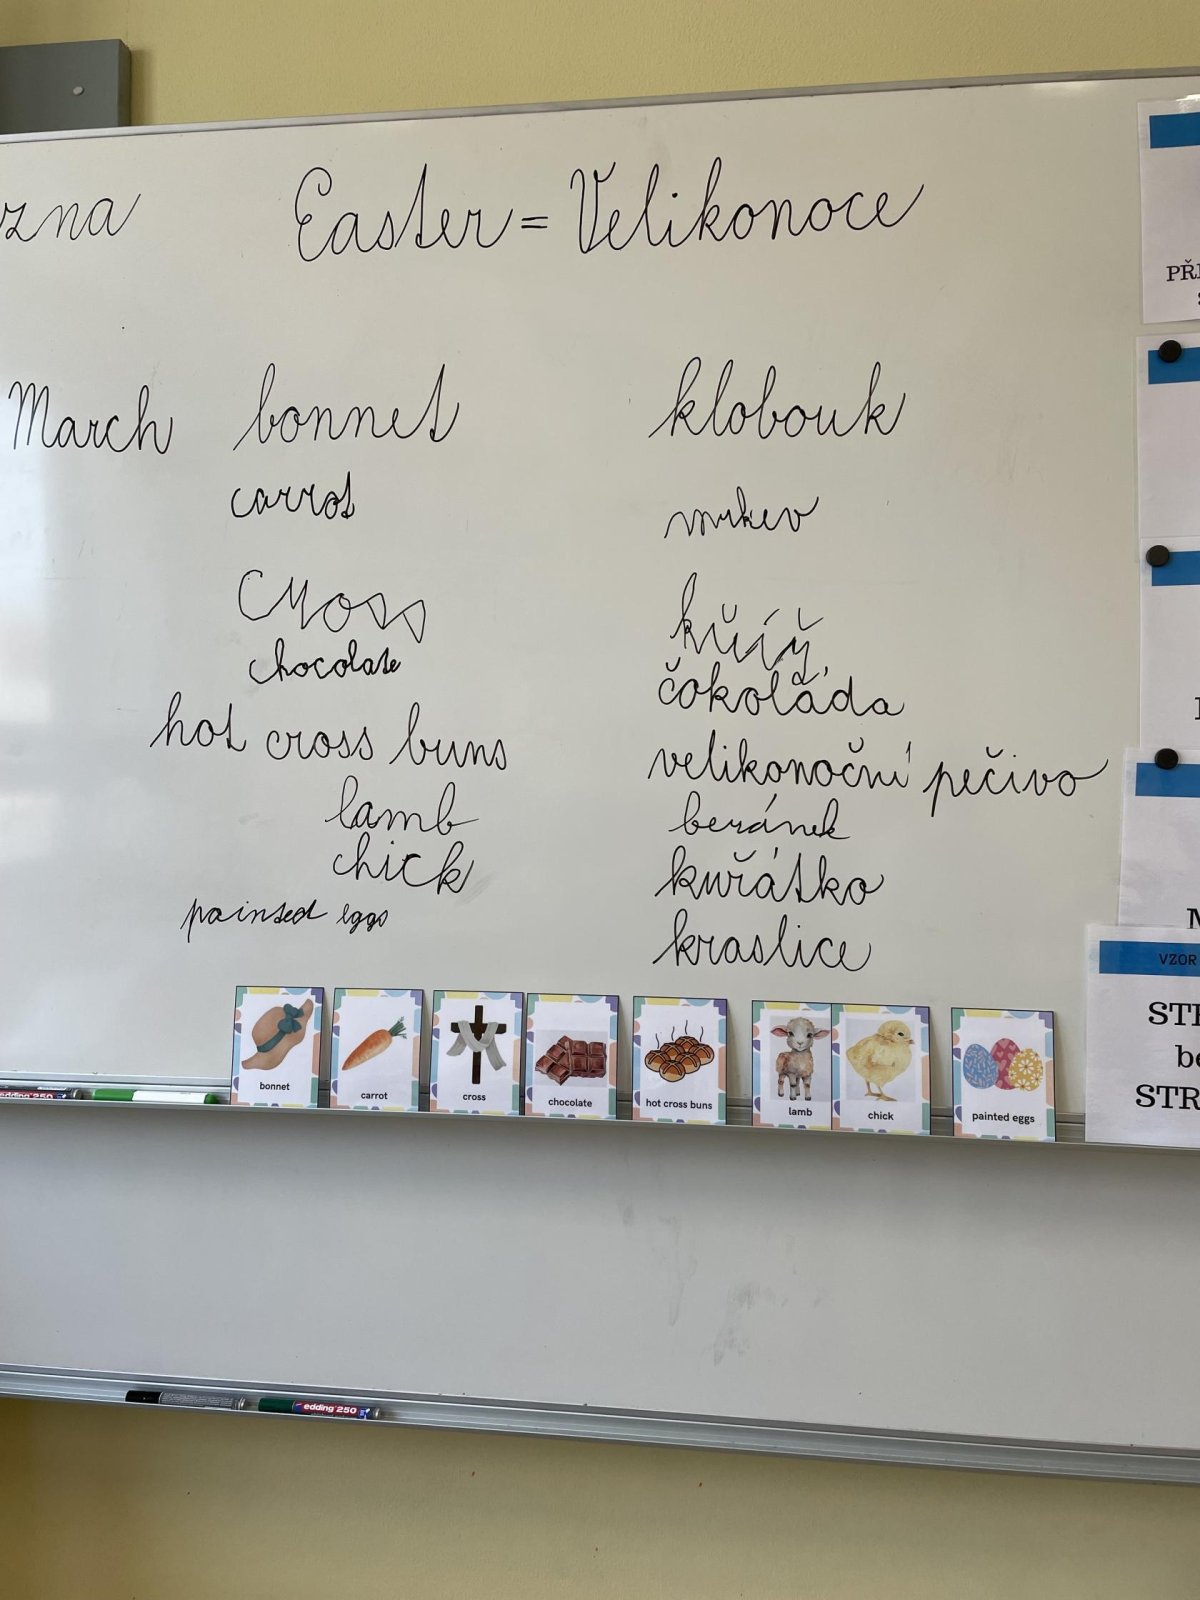 Easter = Velikonoce
March
bonnet klobouk
carrot mrkev
cross kříž
chocolate čokoláda
hot cross buns velikonoční pečivo
lamb beránek
chick kuřátko
painted eggs kraslice
bonnet
carrot
cross
chocolate
hot cross buns
lamb
chick
painted eggs
VZOR
edding 250
edding 250